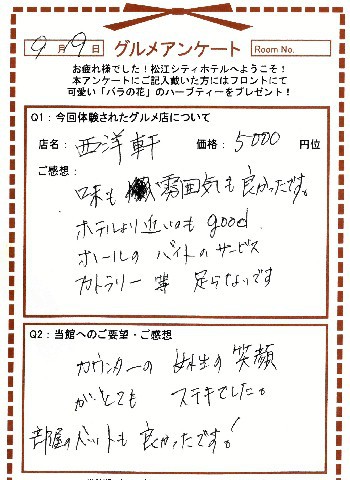 9月9日 グルメアンケート Room No.
お疲れ様でした!松江シティホテルへようこそ!
本アンケートにご記入戴いた方にはフロントにて
可愛い「バラの花」のハーブティーをプレゼント!
Q1:今回体験されたグルメ店について
店名: 西洋軒 価格: 5000 円位
ご感想:
味も 雰囲気も良かったです。
ホテルより近いのも good
ホールの バイトのサービス
カトラリー等 足らないです
Q2:当館へのご要望・ご感想
カウンターの 女性の 笑顔
がとても ステキでした。
部屋のベットも 良かったです!